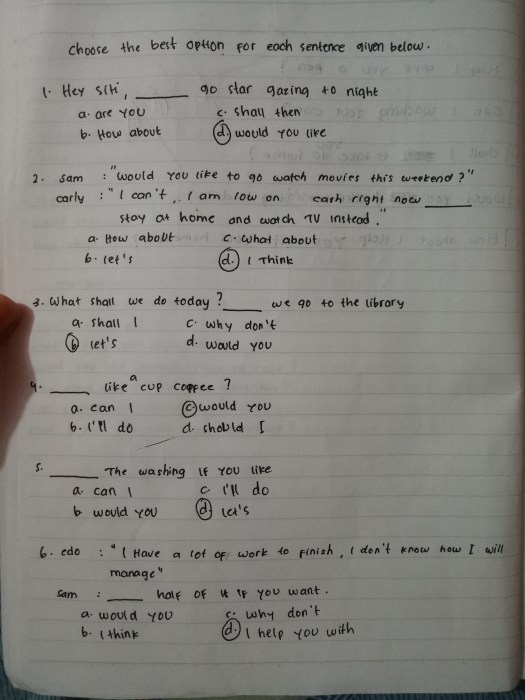 Choose the best option for each sentence given below.
1. Hey Siti, ______ go star gazing to night
a. are you c. shall then
b. How about d. would you like
2. Sam : "would you like to go watch movies this weekend?"
carly : "I can't, I am low on cash right now ______
stay at home and watch TV instead."
a. How about c. what about
b. let's d. I Think
3. What shall we do today? ____ we go to the library
a. shall I c. why don't
b. let's d. would you
4. ____ like a cup coffee ?
a. can I c. would you
b. I'll do d. should I
5. ____ The washing if you like
a. can I c. I'll do
b. would you d. let's
6. edo : "I Have a lot of work to finish, I don't know how I will
manage"
Sam : ____ half of it if you want.
a. would you c. why don't
b. I think d. I help you with